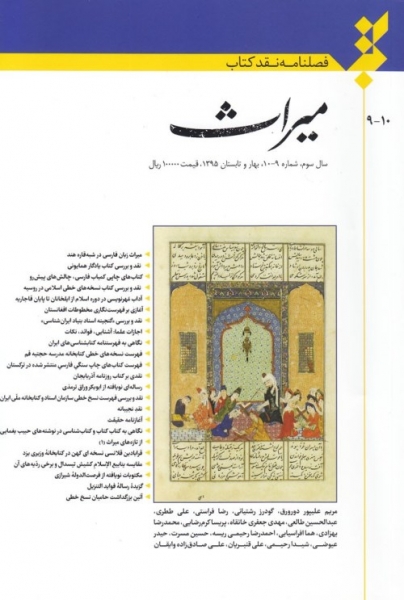 فصلنامه نقد کتاب
۹-۱۰
میراث
سال سوم، شماره ۹-۱۰، بهار و تابستان ۱۳۹۵، قیمت ۱۰۰۰۰۰ ریال
میراث زبان فارسی در شبه‌قاره هند
نقد و بررسی کتاب یادگار همایونی
کتاب‌های چاپی کمیاب فارسی، چالش‌های پیش‌رو
نقد و بررسی کتاب نسخه‌های خطی اسلامی در روسیه
آداب مهرنویسی در دوره اسلام از ایلخانان تا پایان قاجاریه
آغازی بر فهرست‌نگاری مخطوطات افغانستان
نقد و بررسی «گنجینه اسناد بنیاد ایران‌شناسی»
اجازات علما: آشنایی، فوائد، نکات
نگاهی به فهرستنامه کتابشناسی‌های ایران
فهرست نسخه‌های خطی کتابخانه مدرسه حجتیه قم
فهرست کتاب‌های چاپ سنگی فارسی منتشر شده در ترکستان
نقدی بر کتاب روزنامه آذربایجان
رساله‌ای نویافته از ابوبکر وراق ترمذی
نقد و بررسی فهرست نسخ خطی سازمان اسناد و کتابخانه ملی ایران
نقد نجیبانه
آغازنامه حقیقت
نگاهی به کتاب کتاب و کتاب‌شناسی در نوشته‌های حبیب یغمایی
از تازه‌های میراث (۱)
قرابادین قلانسی نسخه ای کهن در کتابخانهٔ وزیری یزد
مقایسه ینابیع الإسلام کشیش تیسدال و برخی ردیه‌های آن
مکتوبات نویافته از فرصت‌الدولهٔ شیرازی
گزیدهٔ رسالهٔ فواید التنزیل
آئین بزرگداشت حامیان نسخ خطی
مریم علیپور دورورق، گودرز رشتیانی، رضا فراستی، علی ططری،
عبدالحسین طالعی، مهدی جعفری خانقاه، پریسا کرم‌رضایی، محمدرضا
بهزادی، هما افراسیابی، احمدرضا رحیمی ریسه، حسین مسرت، حیدر
عیوضی، شیدا رحیمی، علی قنبریان، علی صادق‌زاده وایقان